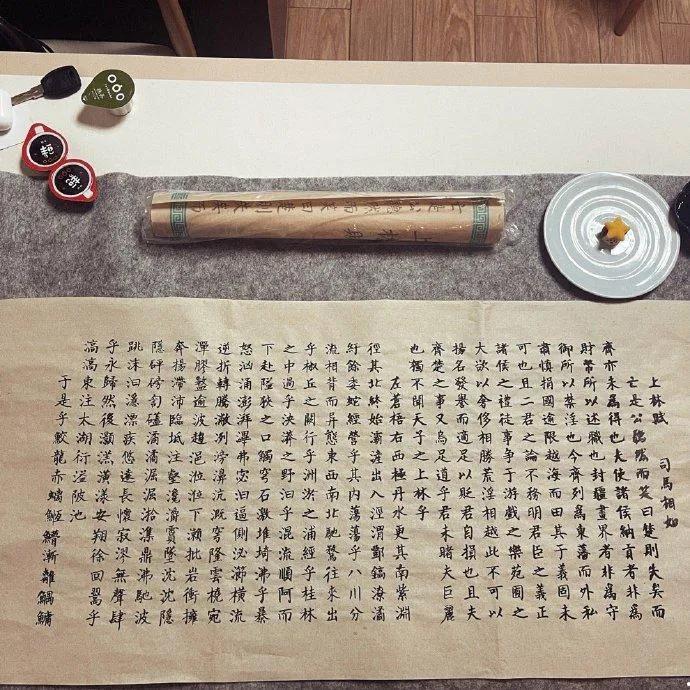 上林賦 司馬相如
亡是公聽然而笑曰楚則失矣而
齊亦未為得也夫使諸侯納貢者非為
財幣所以述職也封疆畫界者非為守
御所以禁淫也今齊列為東藩而外私
肅慎捐國逾限越海而田其于義固未
可也且二君之論不務明君臣之義正
諸侯之禮徒事爭于游戲之樂苑囿之
大欲以奢侈相勝荒淫相越此不可以
揚名發譽而適足以貶君自損也且夫
齊楚之事又烏足道乎君未睹夫巨麗
也獨不聞天子之上林乎
左蒼梧右西極丹水更其南紫淵
徑其北終始灞滻出入涇渭酆鎬潦潏
紆餘委蛇經營乎其內蕩蕩乎八川分
流相背而異態東西南北馳騖往來出
乎椒丘之闕行乎洲淤之浦經乎桂林
之中過乎泱漭之野汩乎混流順阿而
下赴隘狹之口觸穹石激堆埼沸乎暴
怒洶涌澎湃滭弗宓汩逼側泌瀄橫流
逆折轉騰潎洌滂濞沆溉穹隆雲橈宛
潬膠盭逾波趨浥涖涖下瀨批岩衝擁
奔揚滯沛臨坻注壑瀺灂霣墜沈沈隱
隱砰磅訇磕潏潏淈淈湁潗鼎沸馳波
跳沫汩濦漂疾悠遠長懷寂漻無聲肆
乎永歸然後灝溔潢漾安翔徐回翯乎
滈滈東注太湖衍溢陂池
于是乎鮫龍赤螭䱭䲛漸離鰅鱅